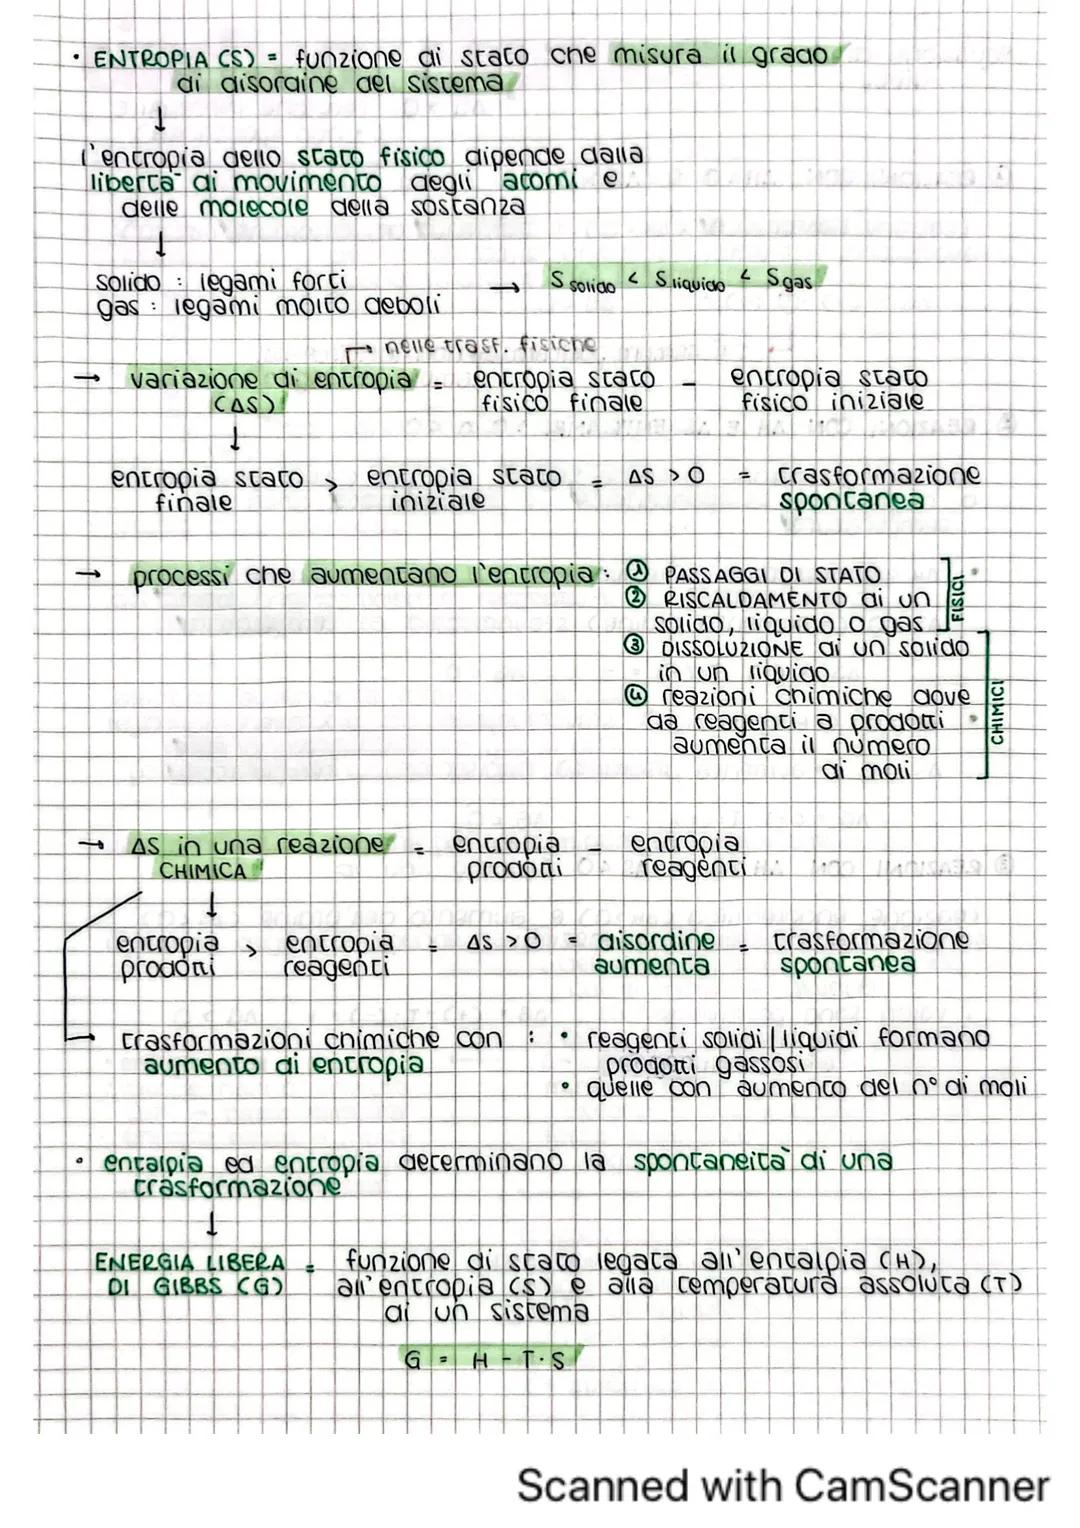 • ENTROPIA (S) = funzione di stato che misura il grado
di disordine del sistema
↓
l'entropia dello stato fisico dipende dalla
libertà di movimento degli atomi e
delle molecole della sostanza
↓
solido : legami forti → S solido < S liquido < S gas
gas : legami molto deboli
↱ nelle trasf. fisiche
→ variazione di entropia = entropia stato – entropia stato
(ΔS) fisico finale fisico iniziale
↓
entropia stato > entropia stato = ΔS > 0 = trasformazione
finale iniziale spontanea
→ processi che aumentano l'entropia : ① PASSAGGI DI STATO
② RISCALDAMENTO di un
solido, liquido o gas
FISICI
③ DISSOLUZIONE di un solido
in un liquido
④ reazioni chimiche dove
da reagenti a prodotti
aumenta il numero
di moli
CHIMICI
→ ΔS in una reazione = entropia – entropia
CHIMICA prodotti reagenti
↓
entropia > entropia = ΔS > 0 = disordine = trasformazione
prodotti reagenti aumenta spontanea
→ trasformazioni chimiche con : • reagenti solidi/liquidi formano
aumento di entropia prodotti gassosi
• quelle con aumento del n° di moli
• entalpia ed entropia determinano la spontaneità di una
trasformazione
↓
ENERGIA LIBERA = funzione di stato legata all'entalpia (H),
DI GIBBS (G) all'entropia (S) e alla temperatura assoluta (T)
di un sistema
G = H – T · S
Scanned with CamScanner